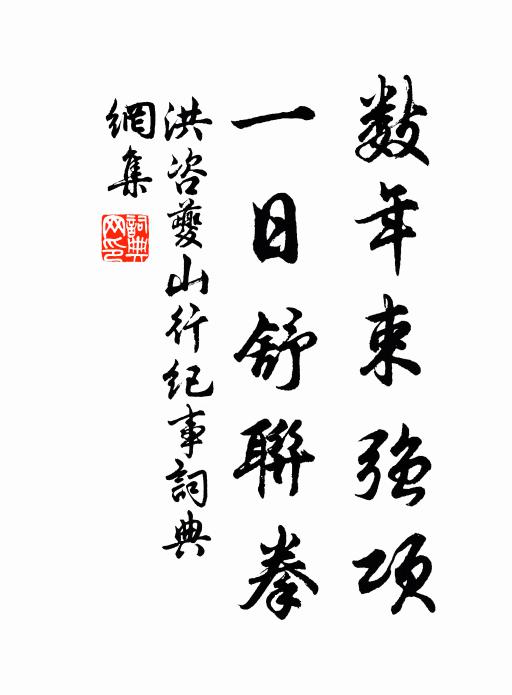 数年束强項
一日舒聯拳
洪咨夔山行纪事詞典
網集
詞典网印